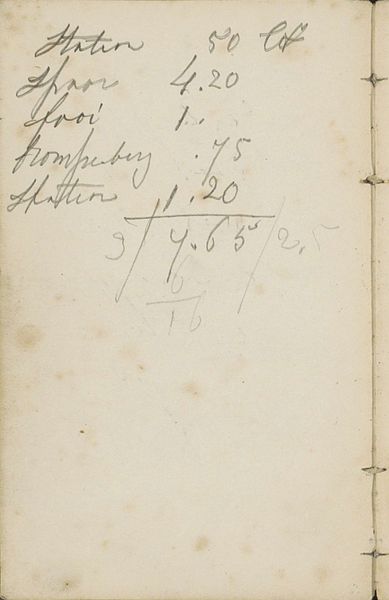 Station 50 ct
Spoor 4.20
fooi 1.
.75
Station 1.20
3/7.65/2.5
6
16